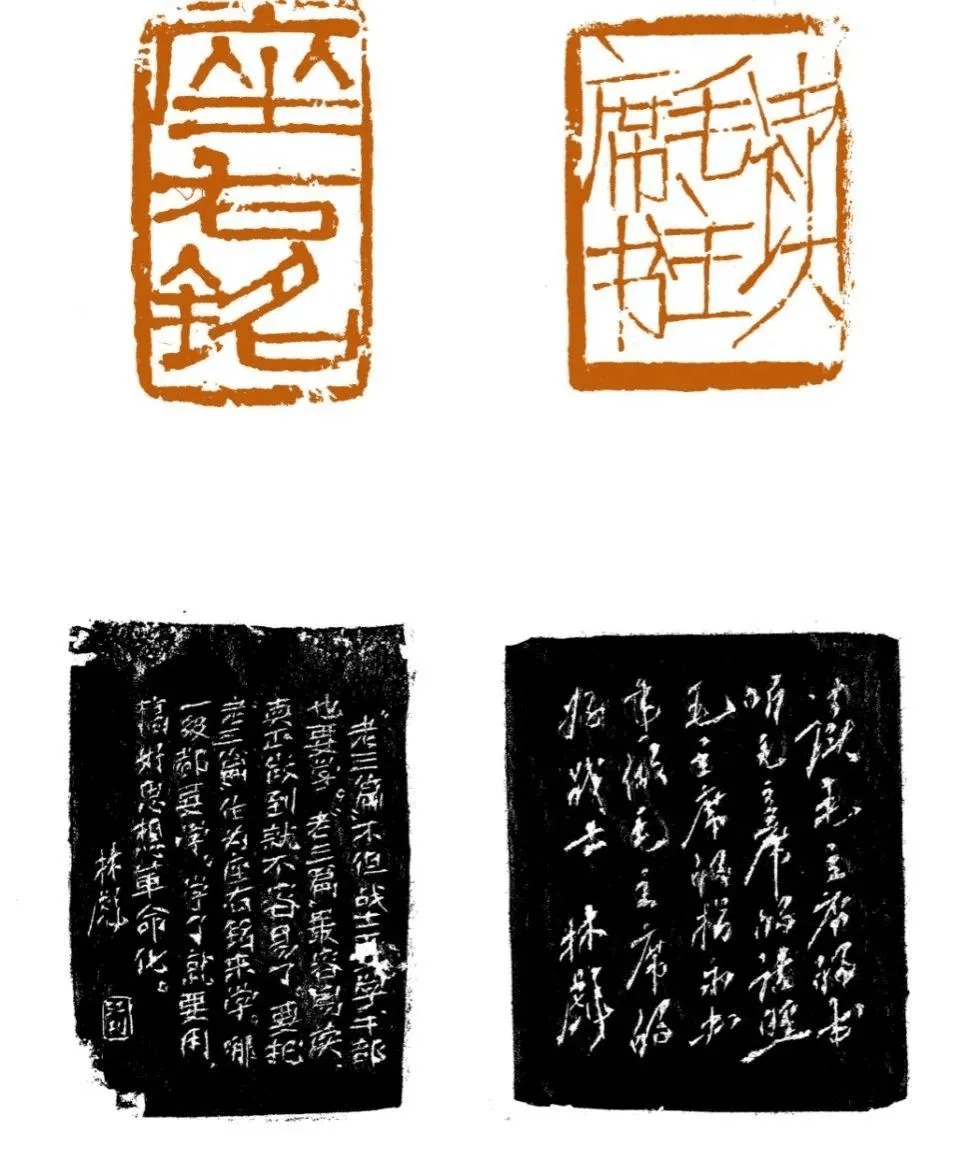 座右銘
读
毛主
席书
“老三篇”不但战士学干部
也要学。老三篇最容易读，
真正做到就不容易了要把
老三篇作为座右铭来学。哪
一级都要学，学了就要用，
搞好思想革命化。
林彪
读毛主席的书
听毛主席的话照
毛主席的指示办
事做毛主席的
好战士 林彪